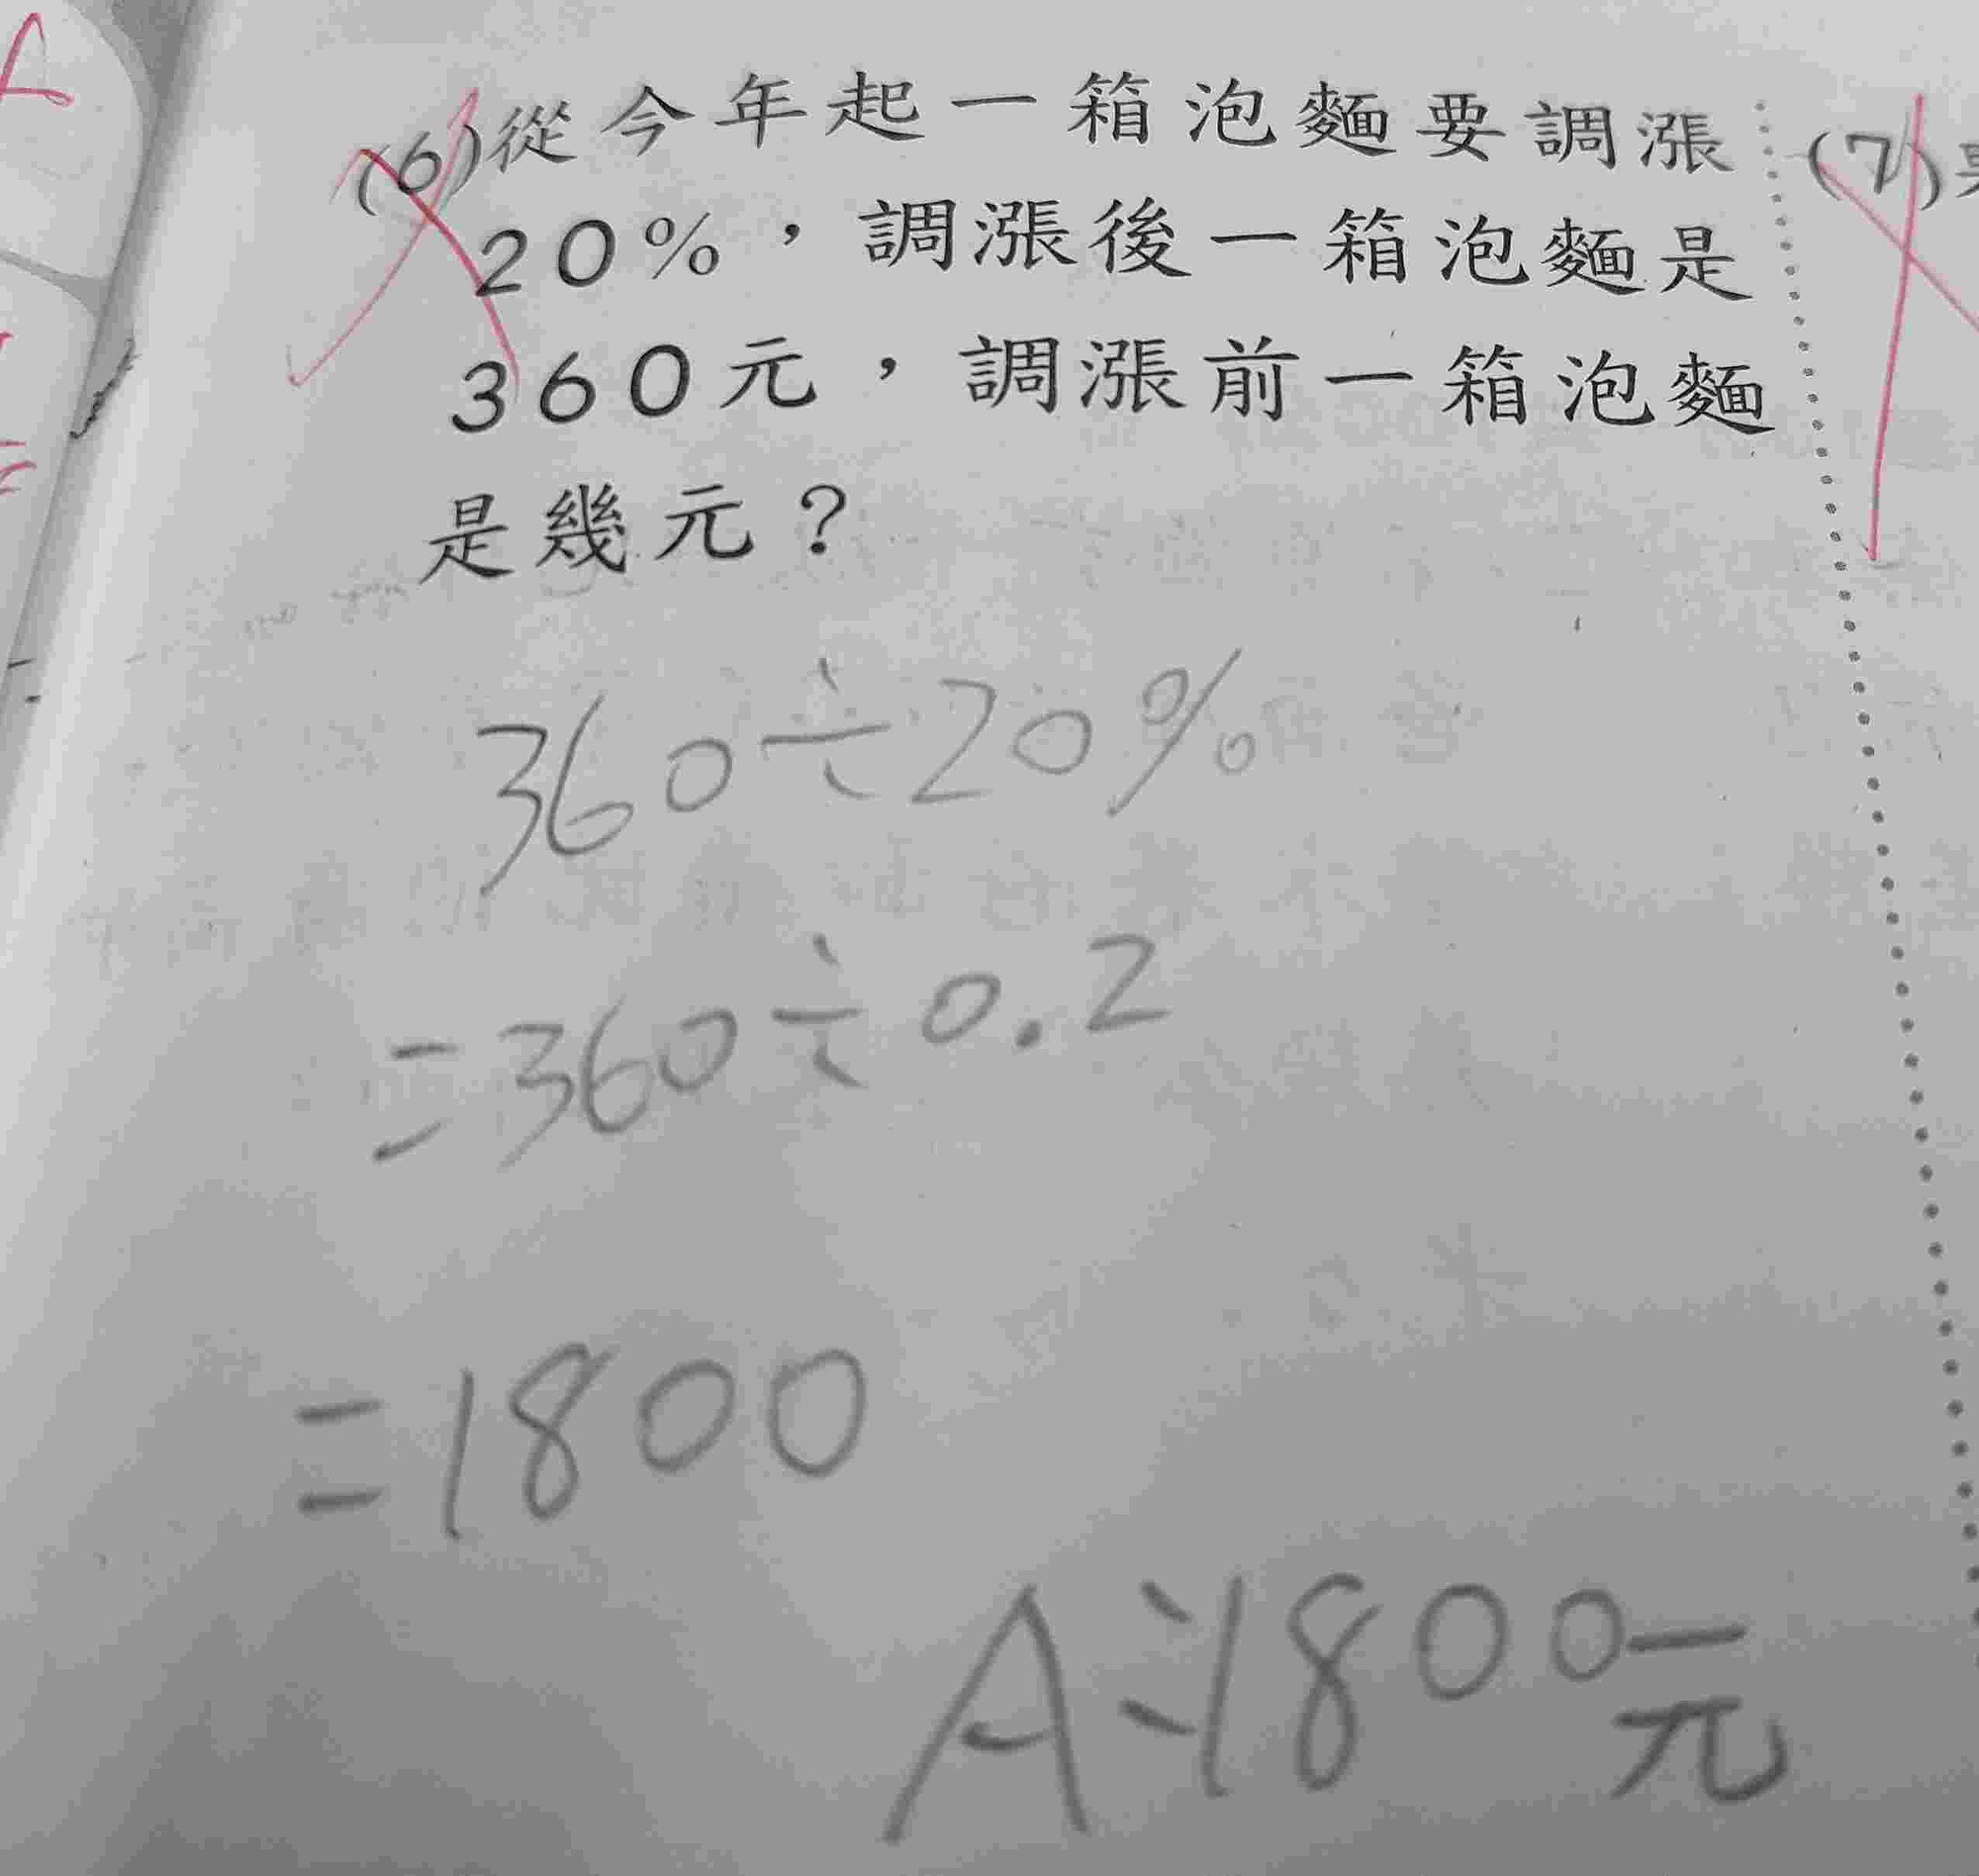 (6)從今年起一箱泡麵要調漲
20%，調漲後一箱泡麵是
360元，調漲前一箱泡麵
是幾元？
(7)
360÷20%
=360÷0.2
=1800
A:1800元